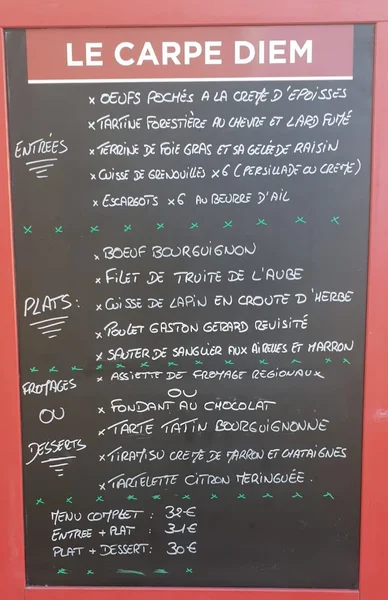 LE CARPE DIEM
ENTRÉES
x OEUFS POCHÉS A LA CREME D'EPOISSES
x TARTINE FORESTIÈRE AU CHEVRE ET LARD FUMÉ
x TERRINE DE FOIE GRAS ET SA GELÉE DE RAISIN
x CUISSE DE GRENOUILLES x6 (PERSILLADE OU CREME)
x ESCARGOTS x6 AU BEURRE D'AIL
PLATS :
x BOEUF BOURGUIGNON
x FILET DE TRUITE DE L'AUBE
x CUISSE DE LAPIN EN CROUTE D'HERBE
x POULET GASTON GERARD REVISITÉ
x SAUTER DE SANGLIER AUX AIRELLES ET MARRON
FROMAGES
x ASSIETTE DE FROMAGE REGIONAUX
OU
OU
DESSERTS
x FONDANT AU CHOCOLAT
x TARTE TATIN BOURGUIGNONNE
x TIRAMISU CREME DE MARRON ET CHATAIGNES
x TARTELETTE CITRON MERINGUÉE.
MENU COMPLET : 38€
ENTREE + PLAT : 31€
PLAT + DESSERT : 30€